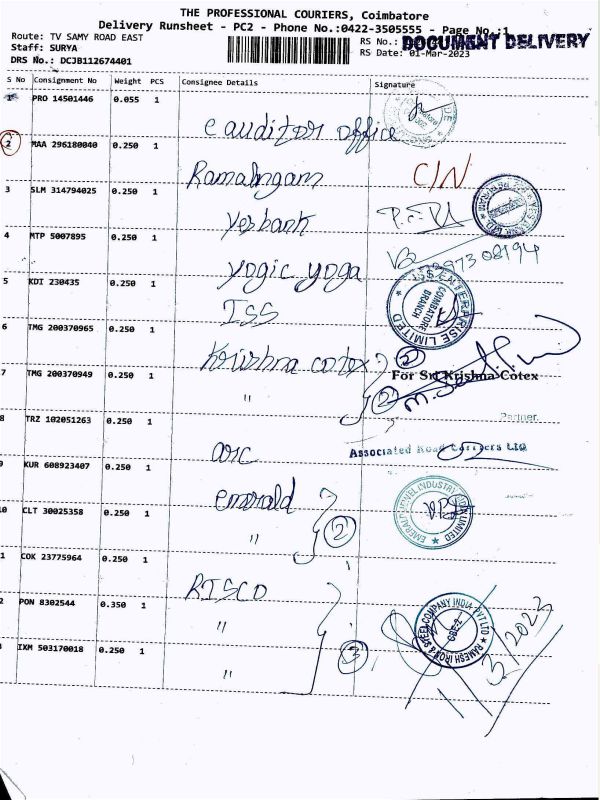 THE PROFESSIONAL COURIERS, Coimbatore
Delivery Runsheet - PC2 - Phone No.:0422-3505555 - Page No.:1
Route: TV SAMY ROAD EAST
RS No.: DOCUMENT DELIVERY
Staff: SURYA
RS Date: 01-Mar-2023
DRS No.: DCJB112674401
S No Consignment No Weight PCS Consignee Details Signature
1 PRO 14501446 0.055 1 c auditor office
2 MAA 296180040 0.250 1 Ramalingam C/N
3 SLM 314794025 0.250 1 Yesbank
4 MTP 5007895 0.250 1 yogic yoga 97308194
5 KDI 230435 0.250 1 ISS ISS ENTERPRISE LIMITED COIMBATORE BRANCH
6 TMG 200370965 0.250 1 Krishna cotex 2
7 TMG 200370949 0.250 1 " 2 For Sri Krishna Cotex
Partner.
8 TRZ 102051263 0.250 1 arc Associated Road Carriers Ltd
9 KUR 608923407 0.250 1 emerald
10 CLT 30025358 0.250 1 " 2
1 COK 23775964 0.250 1 RISCO
2 PON 8302544 0.350 1 " RAMESH IRON & STEEL COMPANY INDIA PVT LTD CBE-2
3 IXM 503170018 0.250 1 " 3 1/3/2023